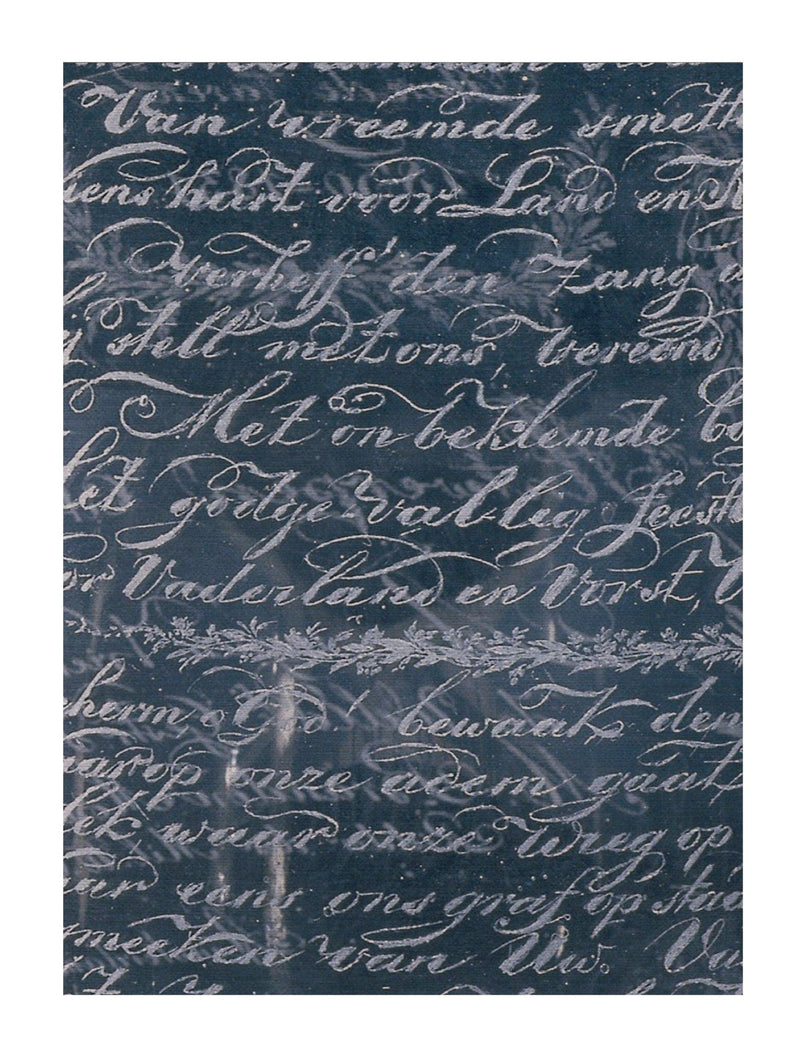 Van vreemde smett
iens hart voor Land en K
verheff' den Zang a
j stell' met ons, vereend
Met onbeklemde bo
et godgevallig feest
or Vaderland en Vorst, V
cherm o God! bewaak den
aarop onze adem gaat
lek waar onze Wieg op
aar eens ons graf op staa
smeeken van Uw. Va